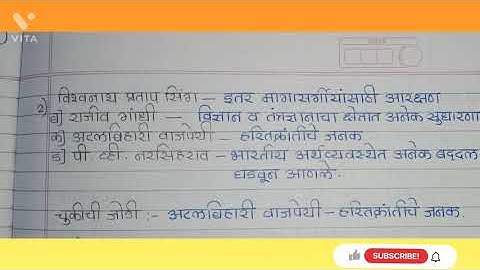 VITA
विश्वनाथ प्रताप सिंग – इतर मागासवर्गीयांसाठी आरक्षण
2)
ब) राजीव गांधी – विज्ञान व तंत्रज्ञानाचा क्षेत्रात अनेक सुधारणा
क) अटलबिहारी वाजपेयी – हरितक्रांतीचे जनक
ड) पी. व्ही. नरसिंहराव – भारतीय अर्थव्यवस्थेत अनेक बदल
घडवून आणले.
चुकीची जोडी :- अटलबिहारी वाजपेयी – हरितक्रांतीचे जनक.
SUBSCRIBE!